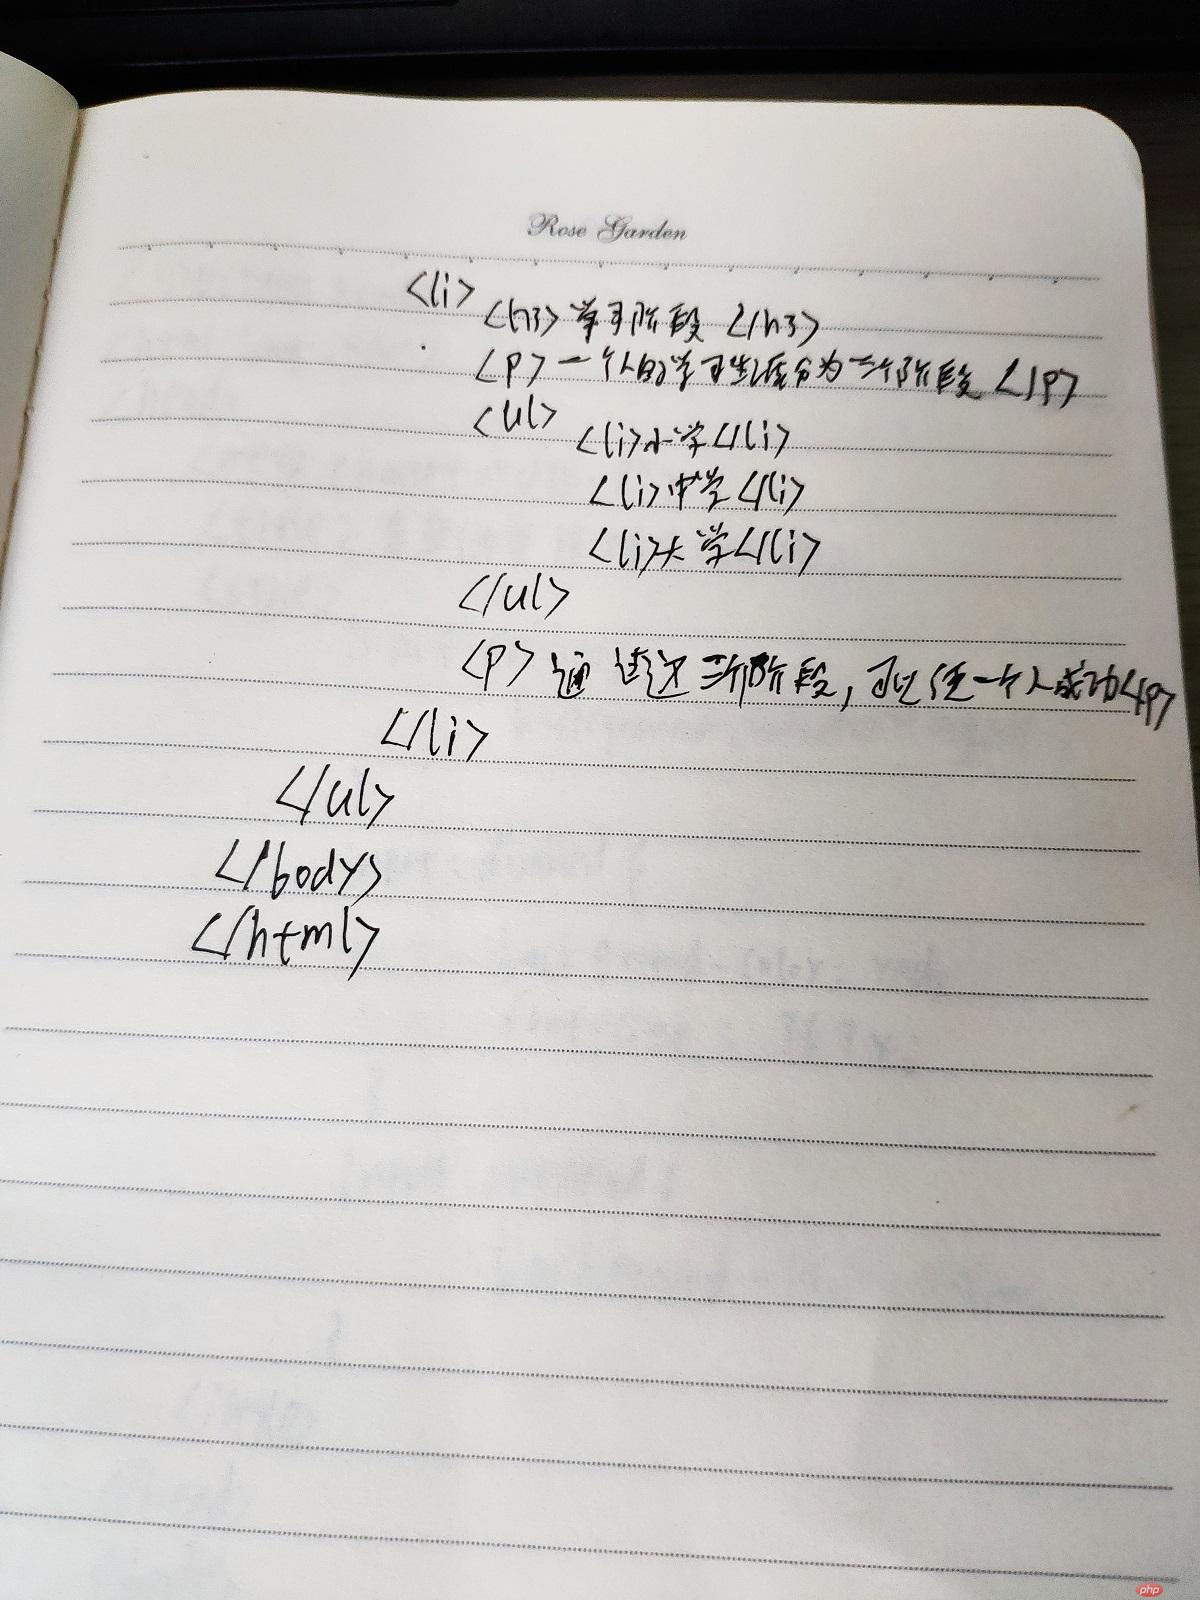 Rose Garden
<li>
<h3>学习阶段</h3>
<p>一个人的学习生涯分为三个阶段</p>
<ul>
<li>小学</li>
<li>中学</li>
<li>大学</li>
</ul>
<p>通过这三个阶段,可以使一个人成功</p>
</li>
</ul>
</body>
</html>
php